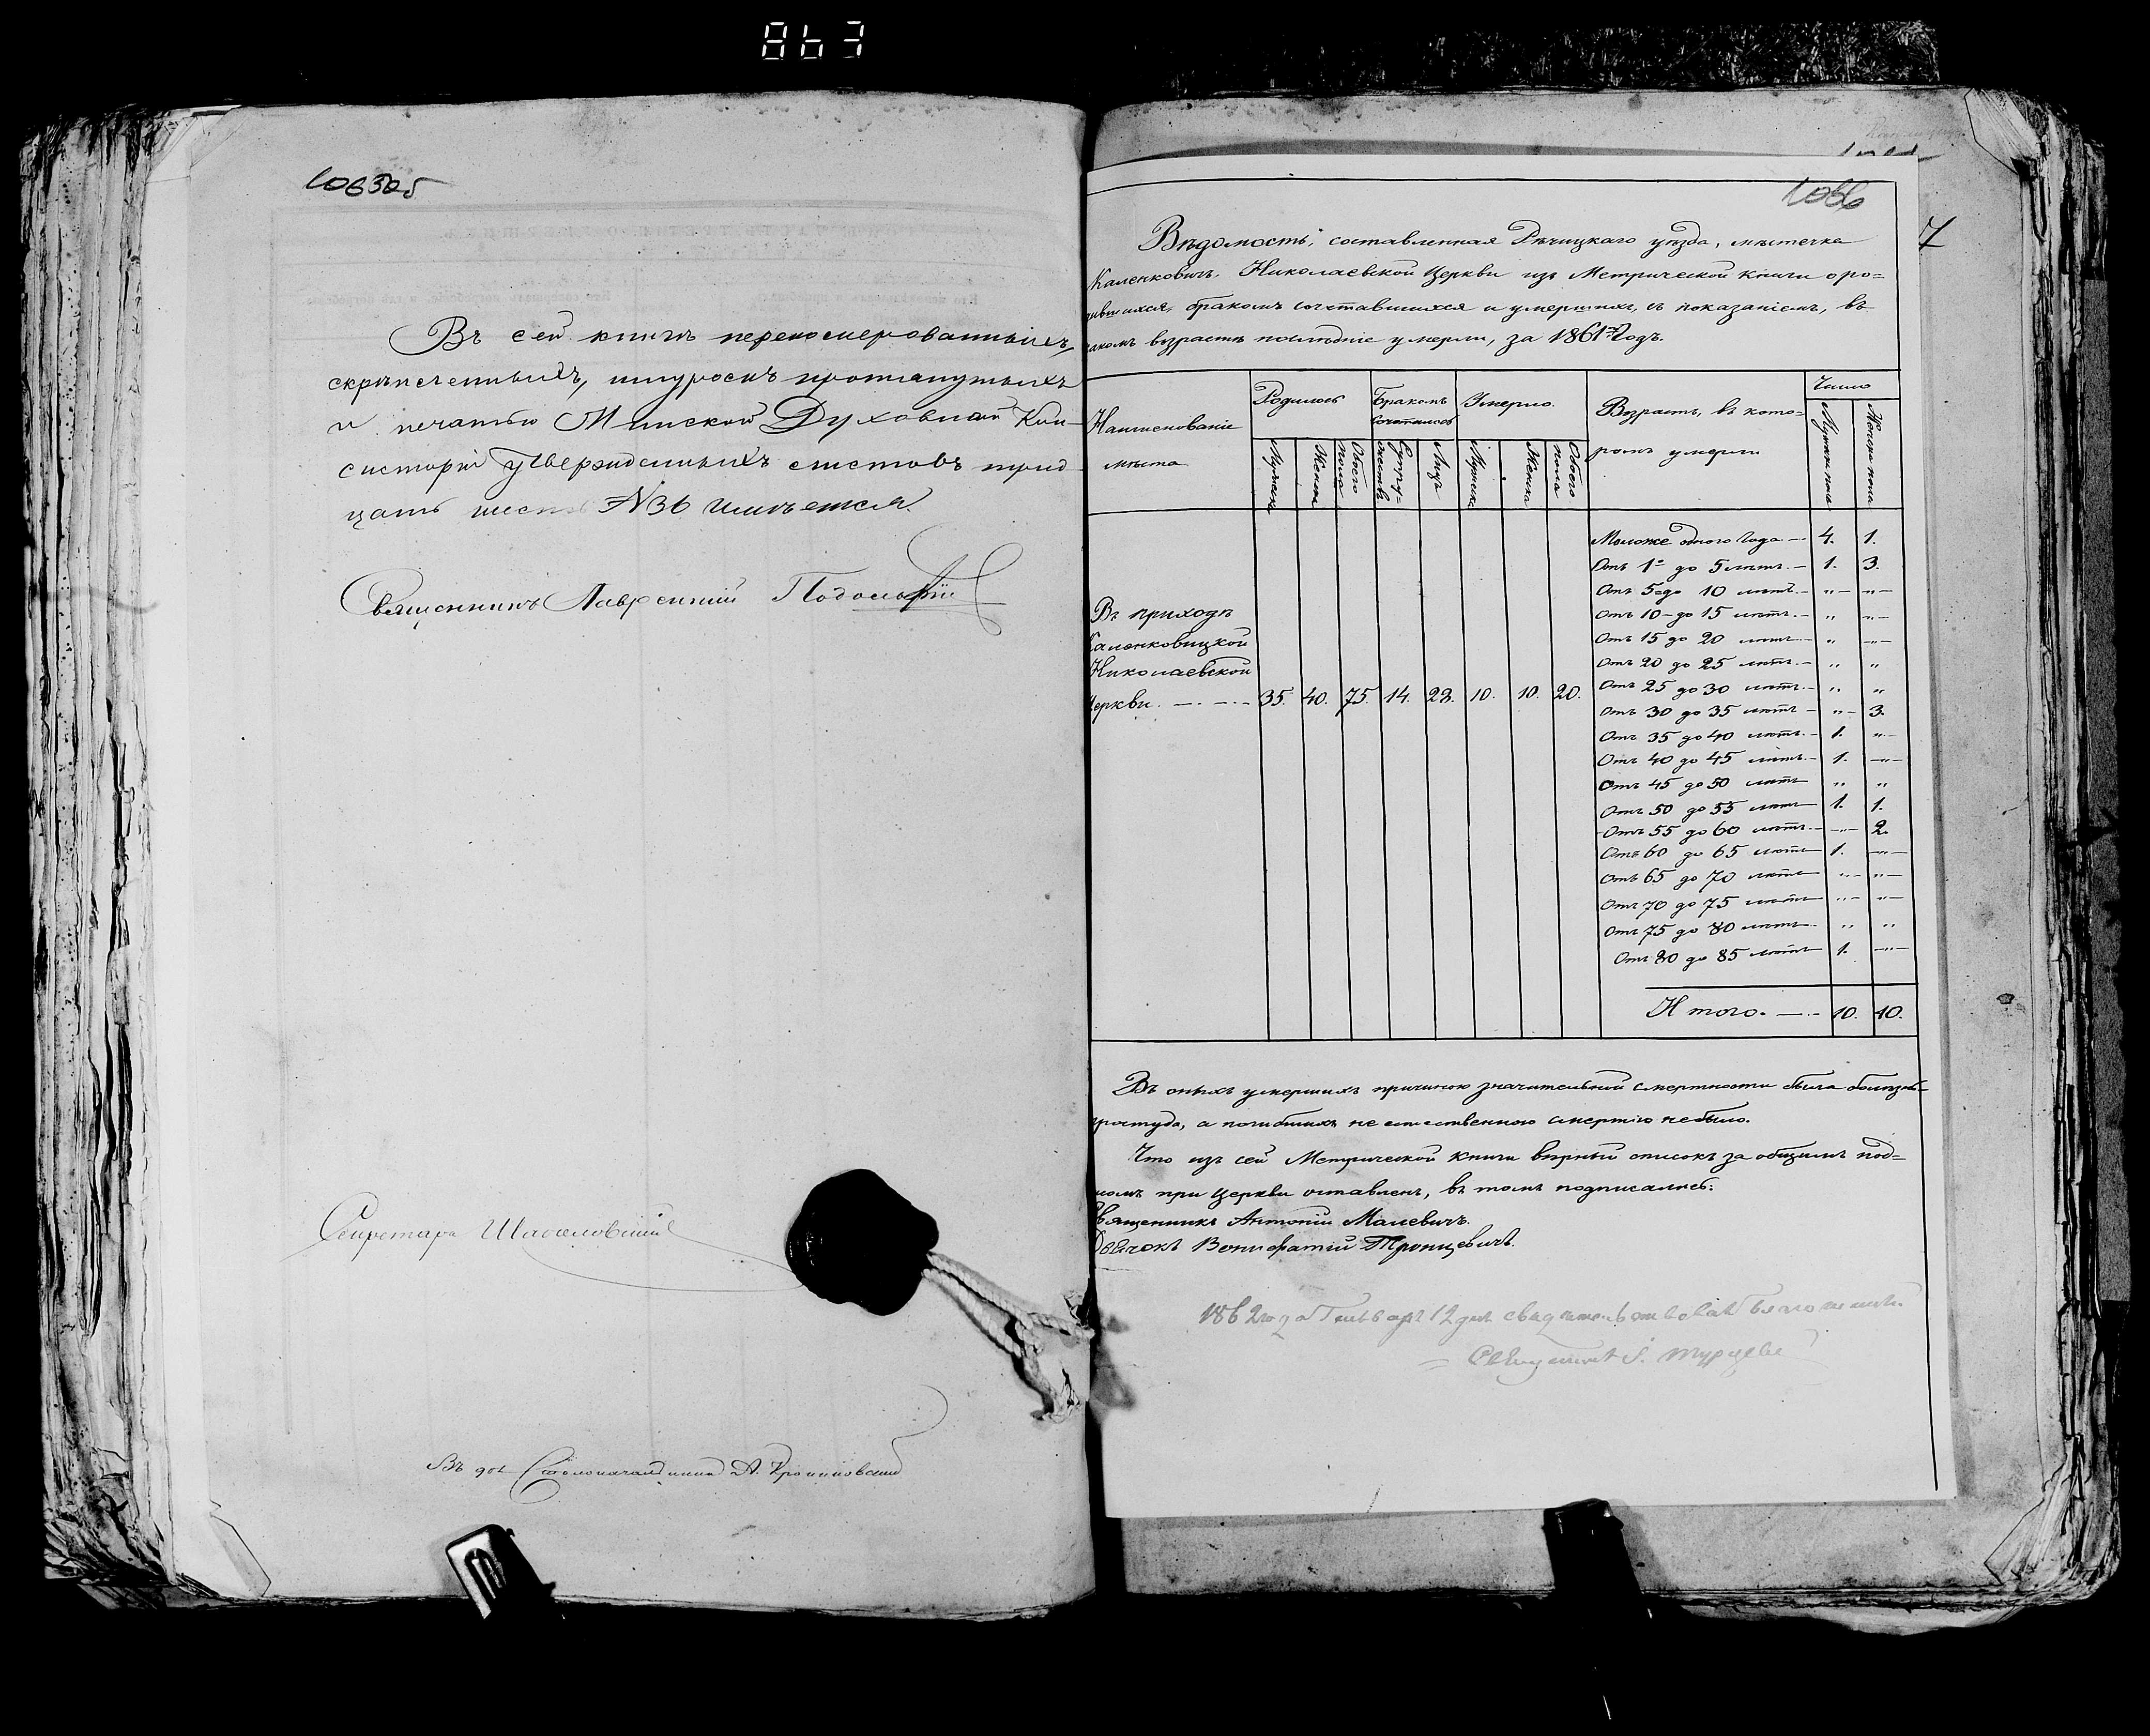 863
1063об
Въ сей книгѣ перенумерованныхъ,
скрѣпленныхъ, шнуромъ протянутыхъ
и печатью Минской Духовной Кон-
систоріи утвержденныхъ листовъ трид
цать шесть №36 имѣется.
Священникъ Лаврентій Подольскій
Секретарь
Въ дол. Столоначальника А.
7
Вѣдомость, составленная Рѣчицкаго уѣзда, мѣстечка
Каленковичъ, Николаевской Церкви изъ Метрической книги о ро=
дившихся, бракомъ сочетавшихся и умершихъ, съ показаніемъ, въ
какомъ возрастѣ послѣдніе умерли, за 1861й Годъ.
Наименованіе
мѣста
Родилось
Бракомъ
сочеталось
Умерло.
Возрастъ, въ кото=
ромъ умерли
Число
Мужеска
Женска
Обоего пола
Супру=жествъ
Лицъ
Мужска
Женска
Обоего пола
Мужеск. пола
Женска пола
Въ приходѣ
Каленковицкой
Николаевской
Церкви. 35. 40. 75. 14. 28. 10. 10. 20.
Моложе одного Года — 4. 1.
Отъ 1го до 5 лѣтъ. — 1. 3.
Отъ 5 до 10 лѣтъ. — „ — „ —
Отъ 10 до 15 лѣтъ. — „ „ —
Отъ 15 до 20 лѣтъ — „ — „ —
Отъ 20 до 25 лѣтъ. — „ „
Отъ 25 до 30 лѣтъ. — „ „
Отъ 30 до 35 лѣтъ — „ — 3.
Отъ 35 до 40 лѣтъ. — 1. „ —
Отъ 40 до 45 лѣтъ. — 1. — „ —
Отъ 45 до 50 лѣтъ „ „
Отъ 50 до 55 лѣтъ 1. 1.
Отъ 55 до 60 лѣтъ. — „ — 2.
Отъ 60 до 65 лѣтъ 1. — „ —
Отъ 65 до 70 лѣтъ „ — „ —
Отъ 70 до 75 лѣтъ „ — „ —
Отъ 75 до 80 лѣтъ. „ „
Отъ 80 до 85 лѣтъ 1. — „ —
Итого. — 10. 10.
Въ оныхъ умершихъ причиною значительной смертности была болѣзнь
простуда, а погибшихъ не естественною смертію небыло.
Что изъ сей Метрической книги вѣрный списокъ за общимъ под=
писомъ при Церкви оставленъ, въ томъ подписались:
Священникъ Антоній Малевичъ.
Дьячокъ Вонифатій Тронцевичъ.
1862 года Генваря 12 дня свидѣтельствовалъ Благочинный
Священникъ І. Турцевичъ